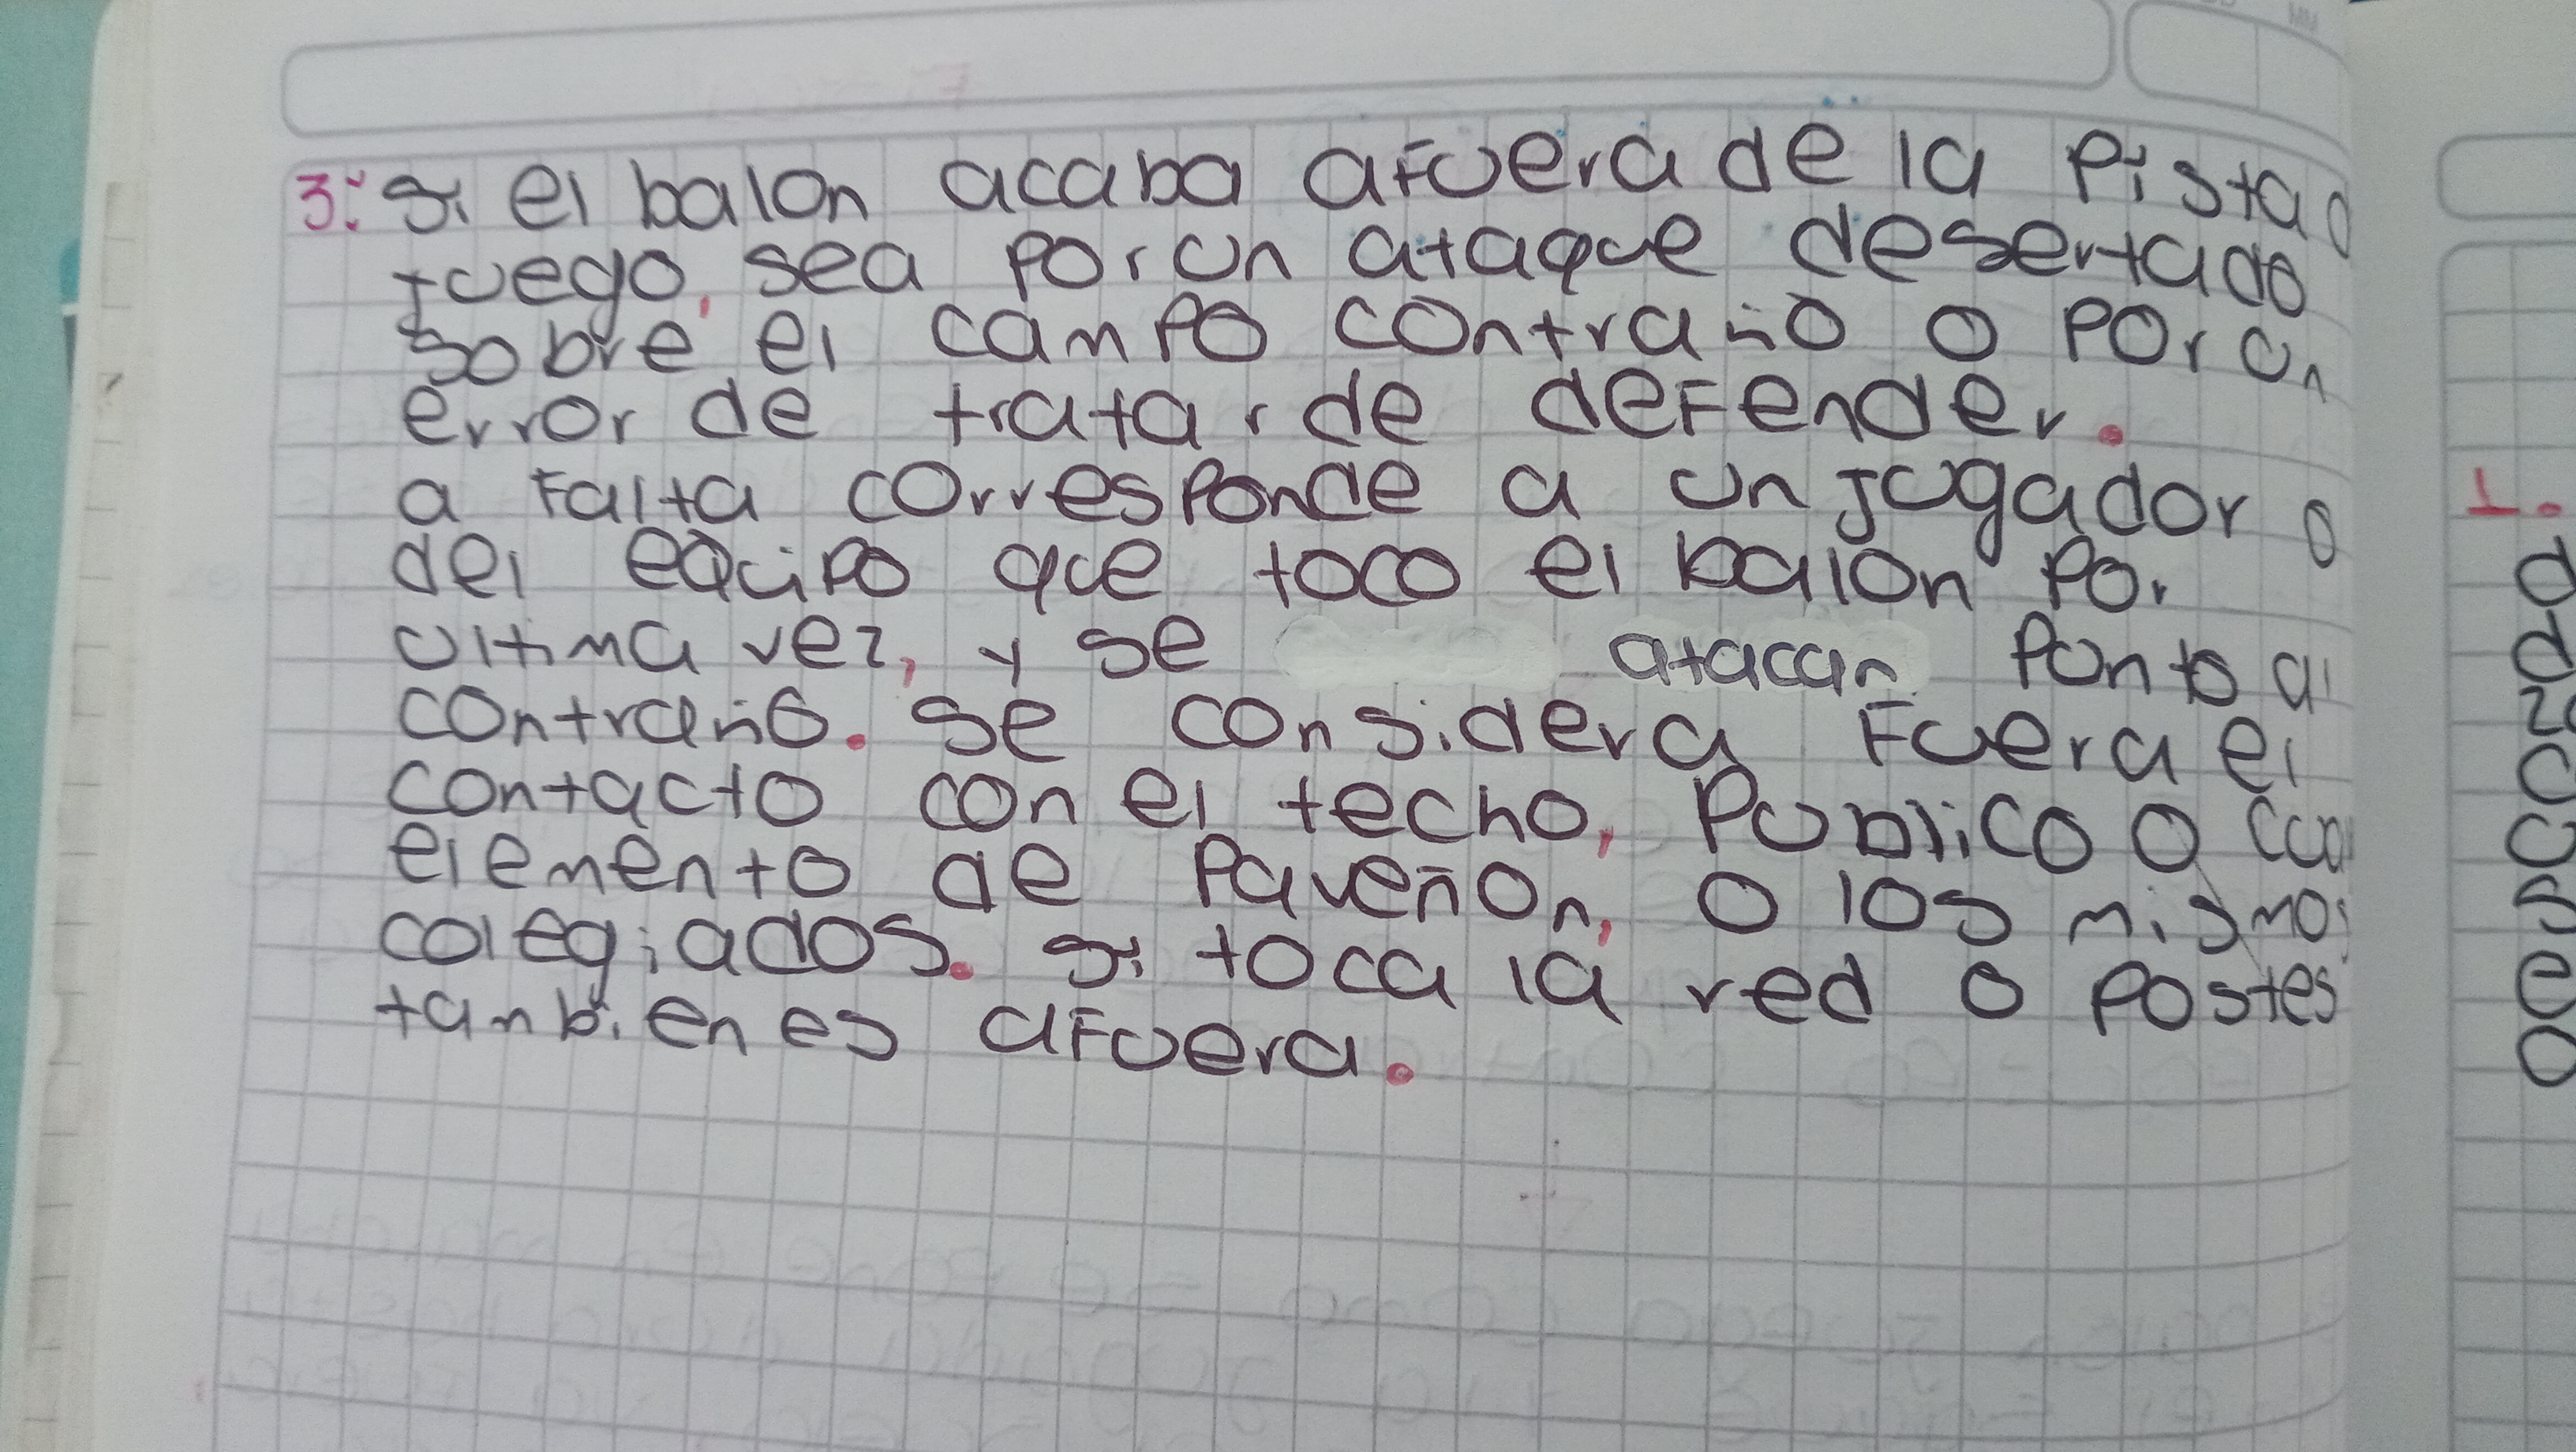 3: si el balon acaba afuera de la Pista
juego, sea por un ataque desertado
sobre el campo contrario o por un
error de tratar de defender.
a falta corresponde a un jugador o
del equipo que toco el balon por
ultima vez, y se atacan Ponto al
contrario. se considera fuera el
contacto con el techo, Publico o
elemento de Paveñon, o los mismos
colegiados. si toca la red o postes
tanbien es afuera.
1.